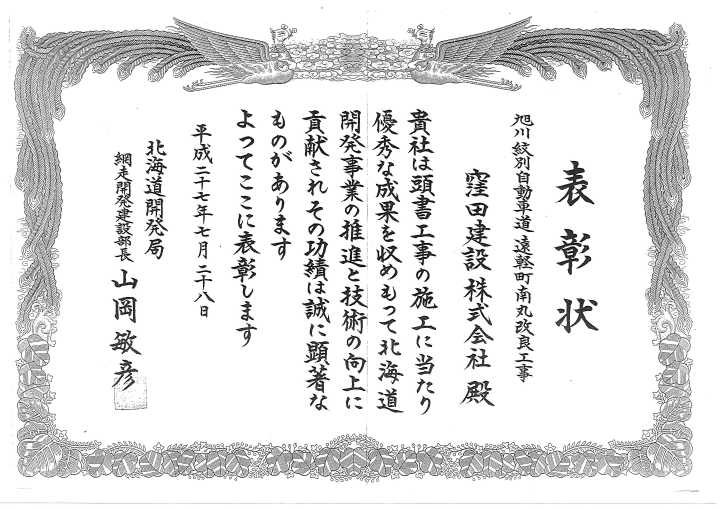 表彰状
旭川紋別自動車道 遠軽町南丸改良工事
窪田建設株式会社 殿
貴社は頭書工事の施工に当たり
優秀な成果を収めもって北海道
開発事業の推進と技術の向上に
貢献され その功績は誠に顕著な
ものがあります
よってここに表彰します
平成二十七年七月二十八日
北海道開発局
網走開発建設部長 山岡敏彦